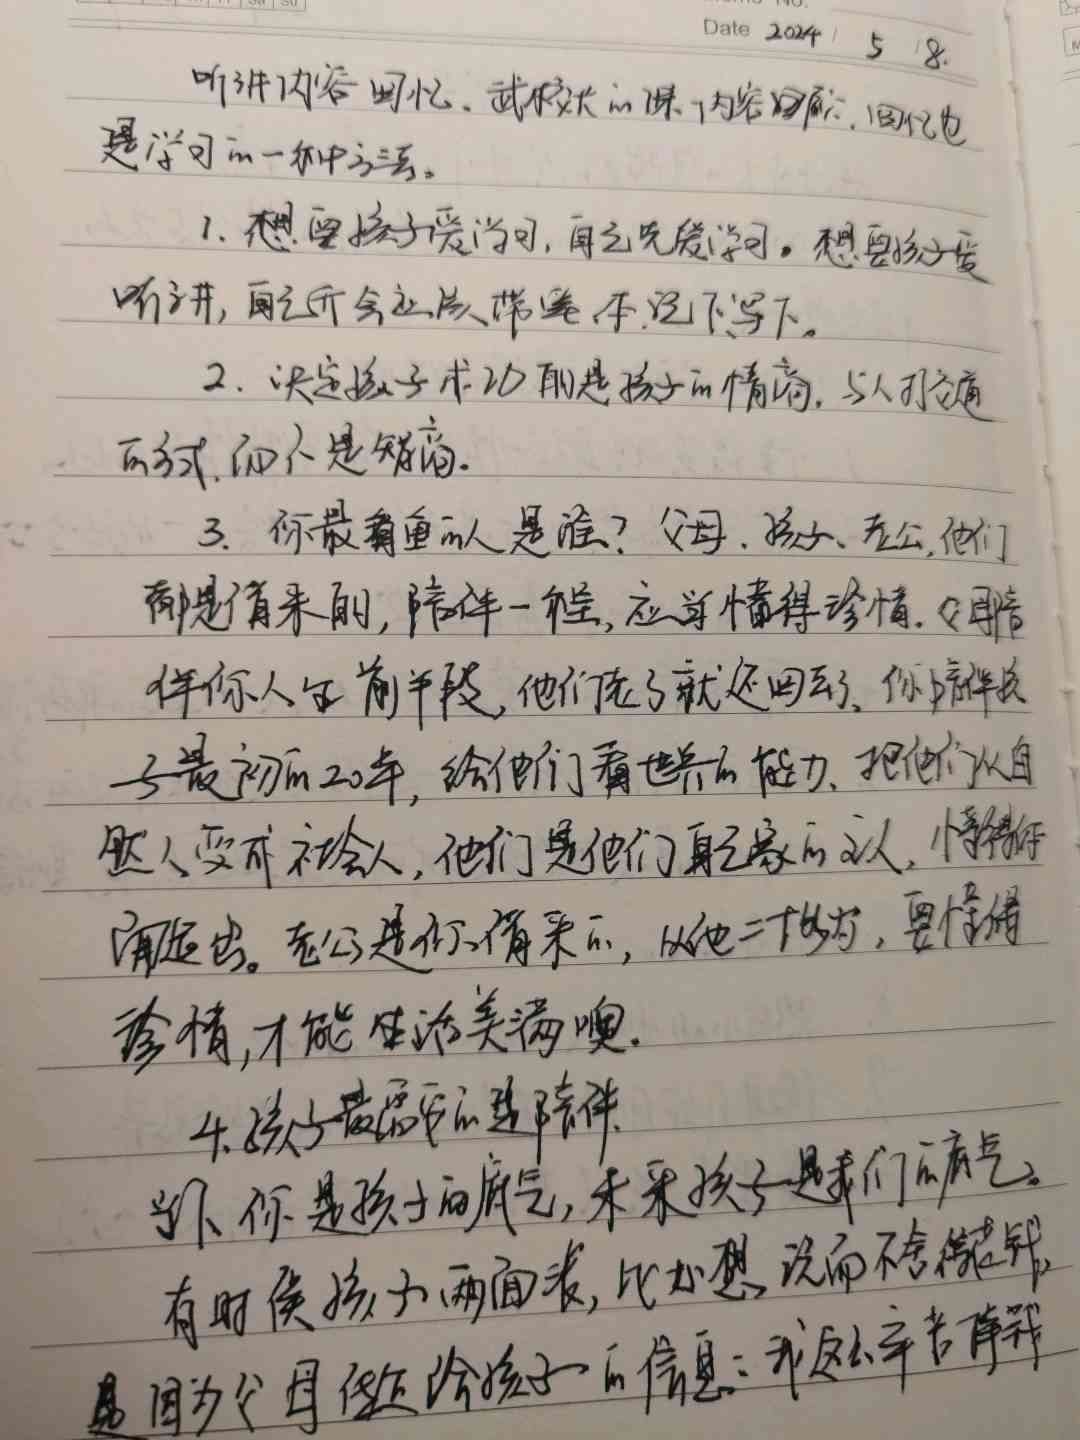 Date 2024 / 5 / 8.
听讲内容回忆、武校大的课内容回顾、回忆也
是学习的一种方法。
1. 想要孩子爱学习，自己先爱学习。想要孩子爱
听讲，自己开会也应带笔本记下写下。
2. 决定孩子成功的是孩子的情商，与人打交道
的方式，而不是智商。
3. 你最看重的人是谁？父母、孩子、老公，他们
都是借来的，陪伴一程，应当懂得珍惜。父母陪
伴你人生前半段，他们老了就还回去了、你陪伴孩
子最初的20年，给他们看世界的能力、把他们从自
然人变成社会人，他们是他们自己家的主人，
老公是你借来的，从他二十岁，要懂得
珍惜，才能生活美满噢。
4. 孩子最需要的是陪伴
当下你是孩子的底气，未来孩子是我们的底气。
有时候孩子两面派，比如想说而不舍得花钱，
是因为父母传递给孩子的信息：我这么辛苦挣钱